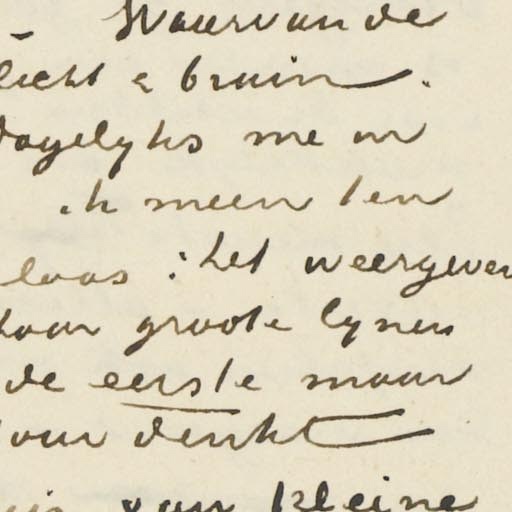 Waarvan de
licht & bruin.
dagelyks me er
ik meen ten
loos: het weergeven
door groote lynen
de eerste maar
door denkt
van kleine